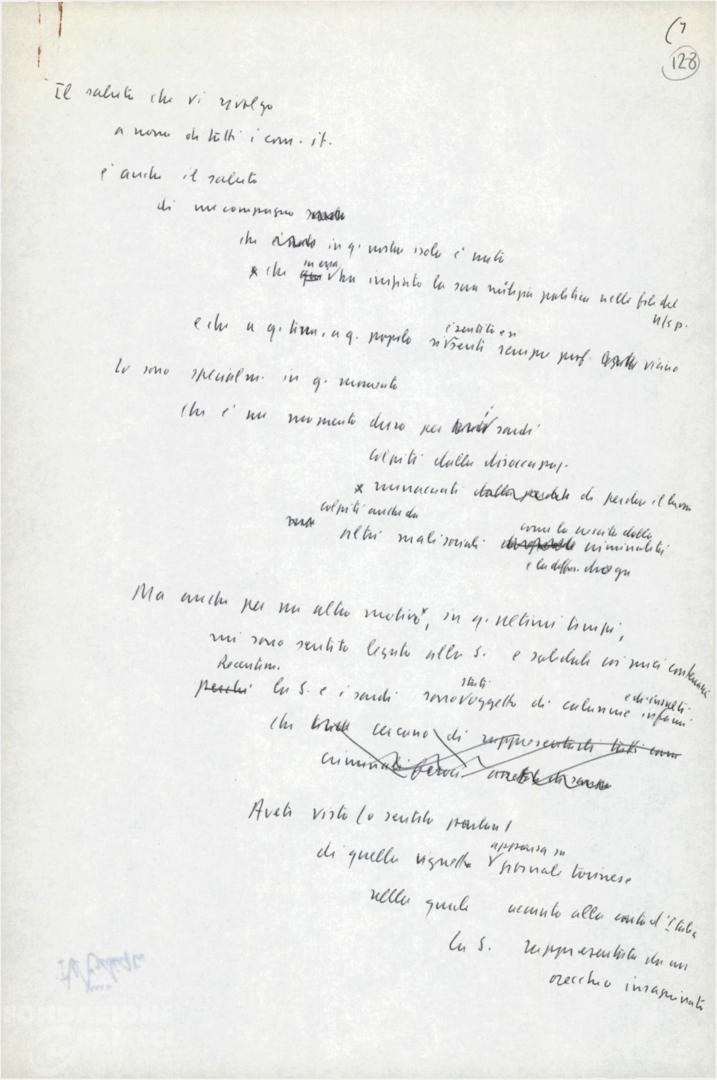 (7
128
Il saluto che vi rivolgo
a nome di tutti i com. it.
è anche il saluto
di un compagno
che in q. nostra isola è nato
x che in essa ha iniziato la sua milizia politica nelle file del
n/s p.
e che a q. terra, a q. popolo si è sentito e si senti sempre prof. vicino
Lo sono specialm. in q. momento
che è un momento duro per i sardi
colpiti dalla disoccupaz.
x minacciati di perdere il lavoro
colpiti anche da
altri mali sociali come la crescita della criminalità
e la diffus. droga
Ma anche per un altro motivo, in q. ultimi tempi,
mi sono sentito legato alla S. e solidale coi miei conterranei
Recentem.
perché la S. e i sardi sono stati oggetto di calunnie infami e di insulti
che cercano di rappresentarli tutti come
criminali feroci
Avete visto (o sentito parlare)
di quella vignetta apparsa su giornale torinese
nella quale accanto alla carta d'Italia
la S. rappresentata da un
orecchio insanguinato
FONDAZIONE
GRAMSCI